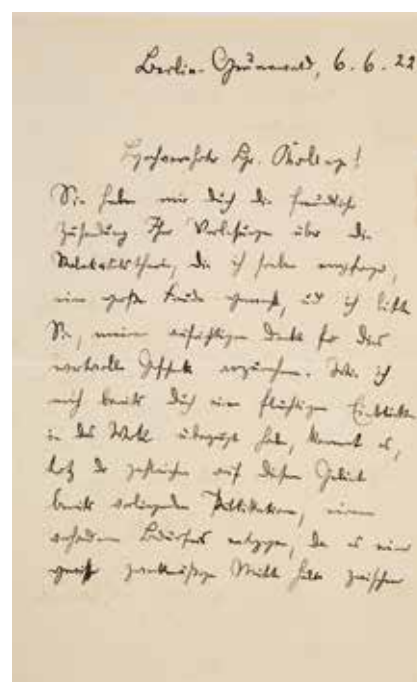 Berlin-Grunewald, 6.6.22
Hochverehrter Hr. Kollege!
Sie haben mir durch die freundliche
Zusendung Ihrer Vorlesungen über die
Relativitätstheorie, die ich soeben empfange,
eine große Freude gemacht, und ich bitte
Sie, meinen aufrichtigen Dank für das
wertvolle Geschenk anzunehmen. Wie ich
mich bereits durch einen flüchtigen Einblick
in das Werk überzeugt habe, kommt es,
trotz der zahlreichen auf diesem Gebiet
bereits vorliegenden Publikationen, einem
Bedürfnis entgegen, da es eine
zweckmäßige Mitte hält zwischen